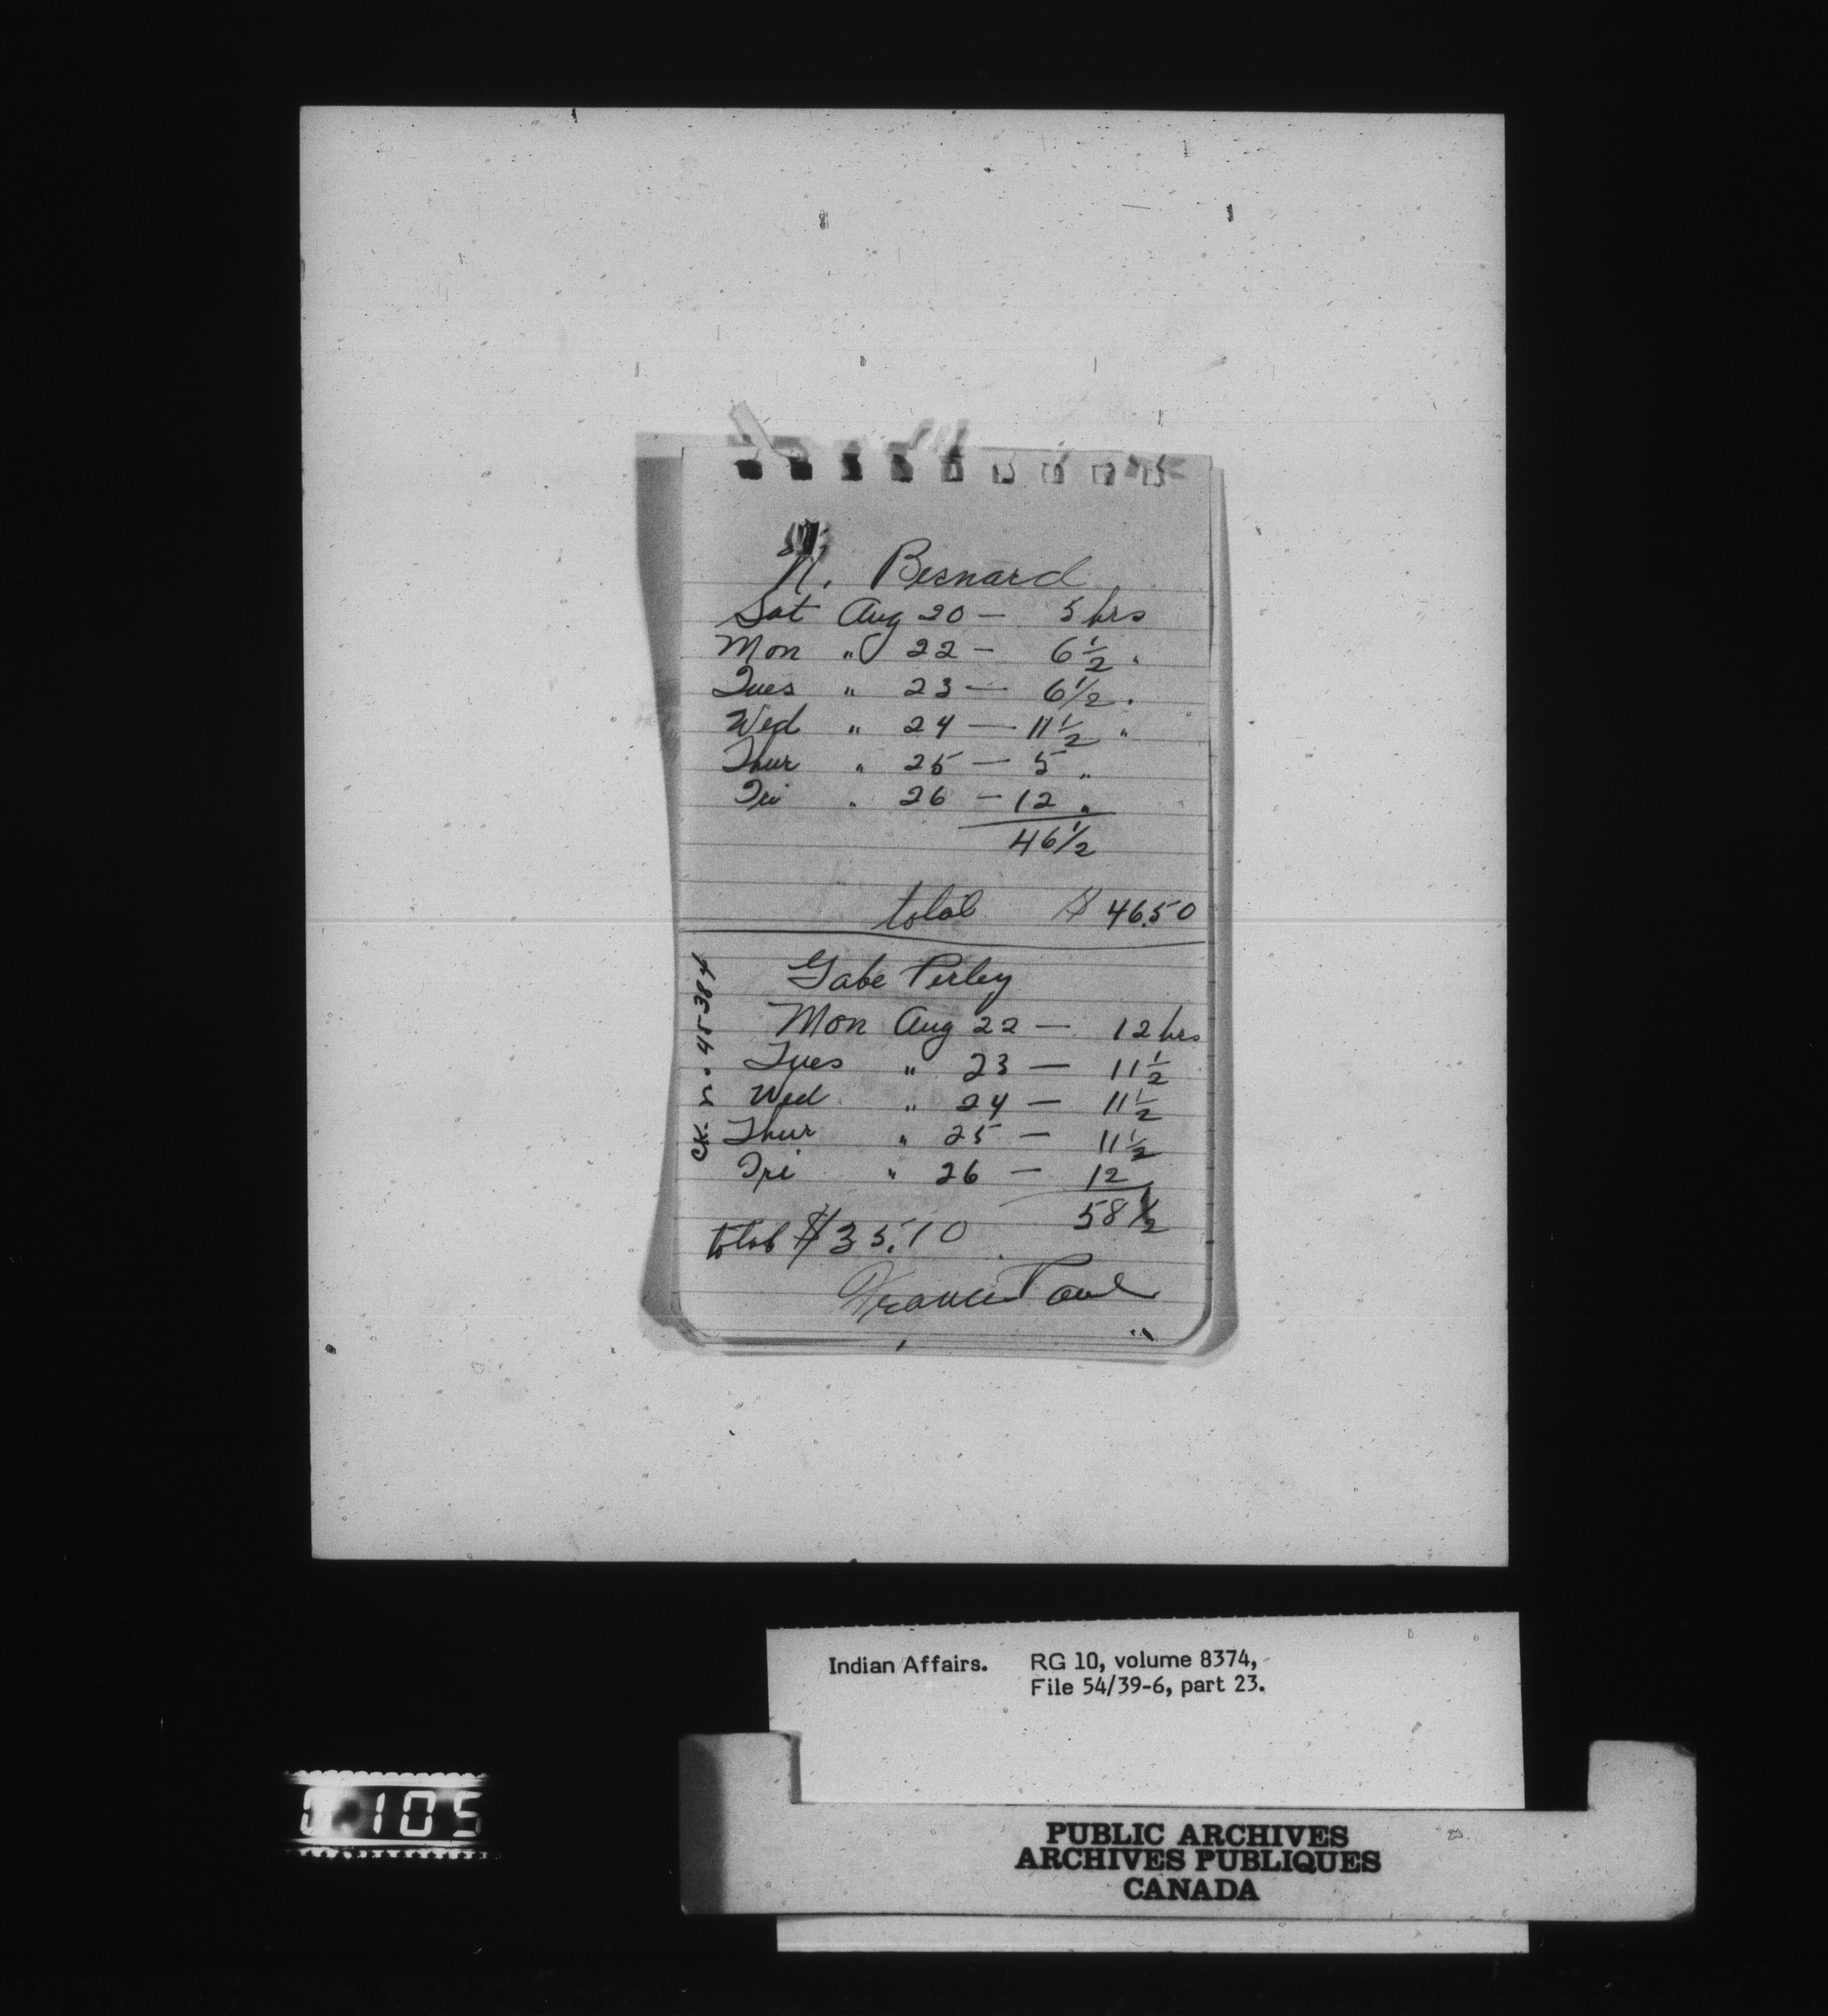 N. Bernard
Sat Aug 20 — 5 hrs
Mon " 22 — 6 1/2 "
Tues " 23 — 6 1/2 "
Wed " 24 — 11 1/2 "
Thur " 25 — 5 "
Fri " 26 — 12 "
46 1/2
total $ 46.50
Gabe Perley
Mon Aug 22 — 12 hrs
Tues " 23 — 11 1/2
Wed " 24 — 11 1/2
Thur " 25 — 11 1/2
Fri " 26 — 12
58 1/2
total $35.10
Francis Paul
CK. no.
Indian Affairs. RG 10, volume 8374,
File 54/39-6, part 23.
105
PUBLIC ARCHIVES
ARCHIVES PUBLIQUES
CANADA